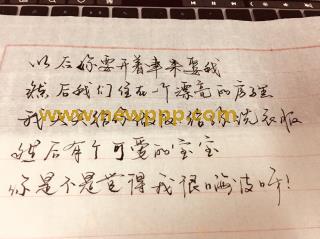 以后你要开着车来娶我
然后我们住在一个漂亮的房子里
我天天给你做饭给你洗衣服
www.newppp.com
然后有个可爱的宝宝
你是不是觉得我很嗨皮呀！